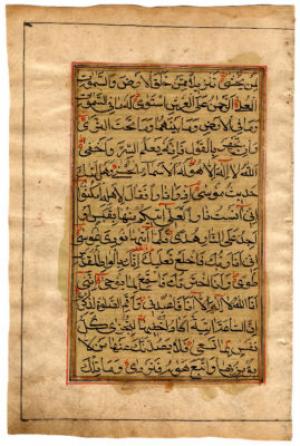 لمن يخشى تنزيلا ممن خلق الارض والسموت
العلى الرحمن على العرش استوى له ما في السموت
وما في الارض وما بينهما وما تحت الثرى
وان تجهر بالقول فانه يعلم السر واخفى
الله لا اله الا هو له الاسماء الحسنى وهل اتيك
حديث موسى اذ را نارا فقال لاهله امكثوا
اني انست نارا لعلي اتيكم منها بقبس او
اجد على النار هدى فلما اتيها نودي يموسى
اني انا ربك فاخلع نعليك انك بالواد المقدس
طوى وانا اخترتك فاستمع لما يوحى انني
انا الله لا اله الا انا فاعبدني واقم الصلوة لذكري
ان الساعة اتية اكاد اخفيها لتجزى كل
نفس بما تسعى فلا يصدنك عنها من لا
يؤمن بها واتبع هويه فتردى وما تلك